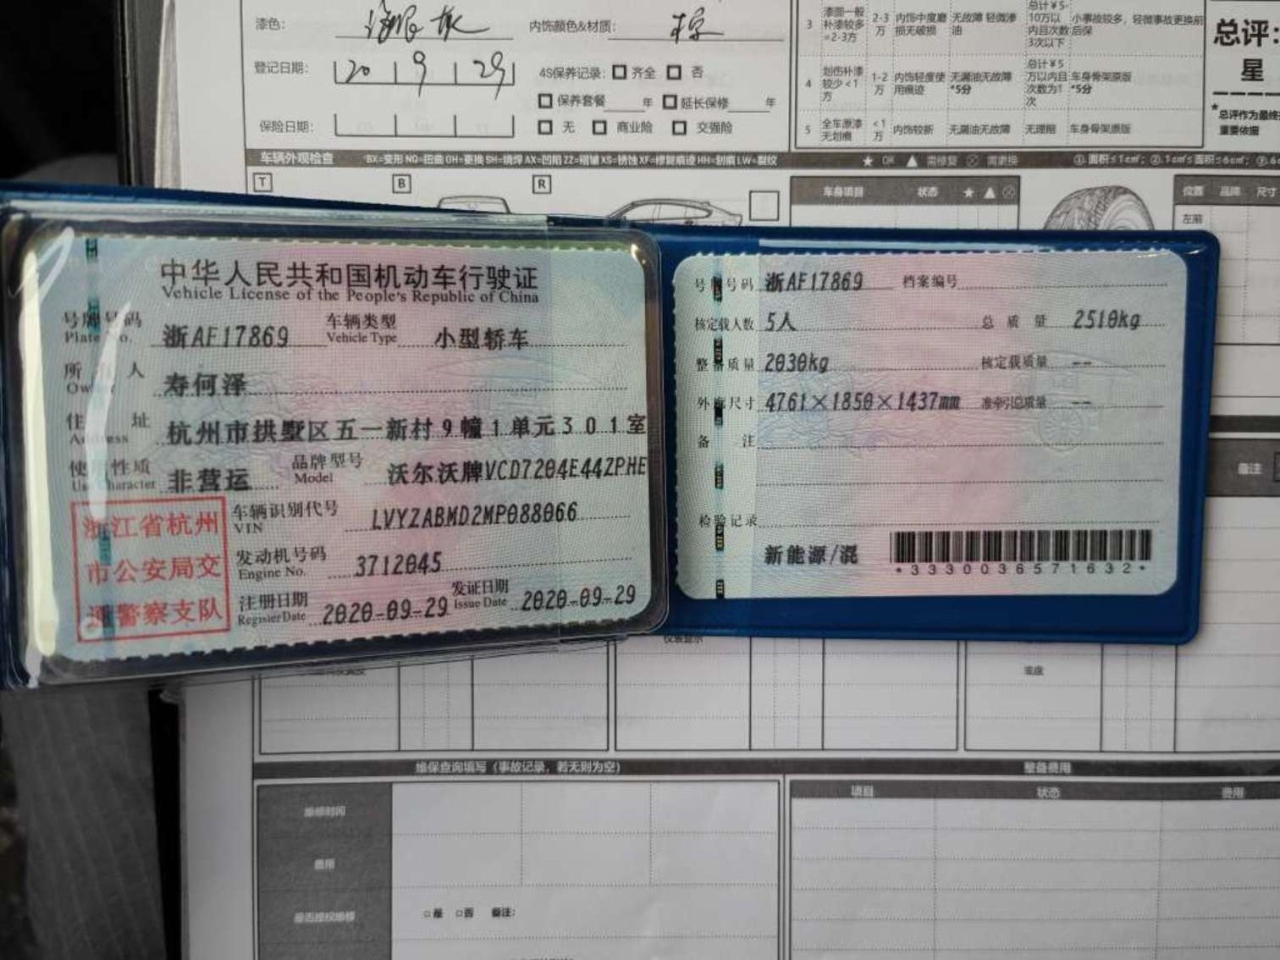 漆色：
内饰颜色&材质：
登记日期： 20 9 29
4S保养记录： 齐全 否
保养套餐 年 延长保修 年
保险日期：
无 商业险 交强险
3 漆面一般补漆较多=2-3方 2-3万 内饰中度磨损无破损 无故障 轻微渗油 总计￥5-10万以内且次数3次以下 小事故较多，轻微事故更换前后保
4 划伤补漆较少<1方 1-2万 内饰轻度使用痕迹 无漏油无故障*5分 总计￥5万以内且次数为1次 车身骨架原版*5分
5 全车原漆无划痕 <1万 内饰较新 无漏油无故障 无理赔 车身骨架原版
总评：
星
*总评作为最终
重要依据
车辆外观检查
★ OK ▲ 需修复 需更换
T B R
车身项目 状态 ★ ▲
位置 品牌 尺寸
左前
中华人民共和国机动车行驶证
Vehicle License of the People's Republic of China
号牌号码 浙AF17869 车辆类型 小型轿车
Plate No. Vehicle Type
所有人 寿何泽
Owner
住址 杭州市拱墅区五一新村9幢1单元301室
Address
使用性质 非营运 品牌型号 沃尔沃牌VCD7204E44ZPHE
Use Character Model
车辆识别代号 LVYZABMD2MP088066
VIN
发动机号码 3712045
Engine No.
注册日期 2020-09-29 发证日期 2020-09-29
Register Date Issue Date
浙江省杭州
市公安局交
通警察支队
号牌号码 浙AF17869 档案编号
核定载人数 5人 总质量 2510kg
整备质量 2030kg 核定载质量 --
外廓尺寸 4761×1850×1437mm 准牵引总质量 --
备注
检验记录
新能源/混
*3330036571632*
备注
仪表显示
底盘
维保查询填写（事故记录，若无则为空）
整备费用
维修时间
费用
是否授权维修
是 否 备注：
项目 状态 费用